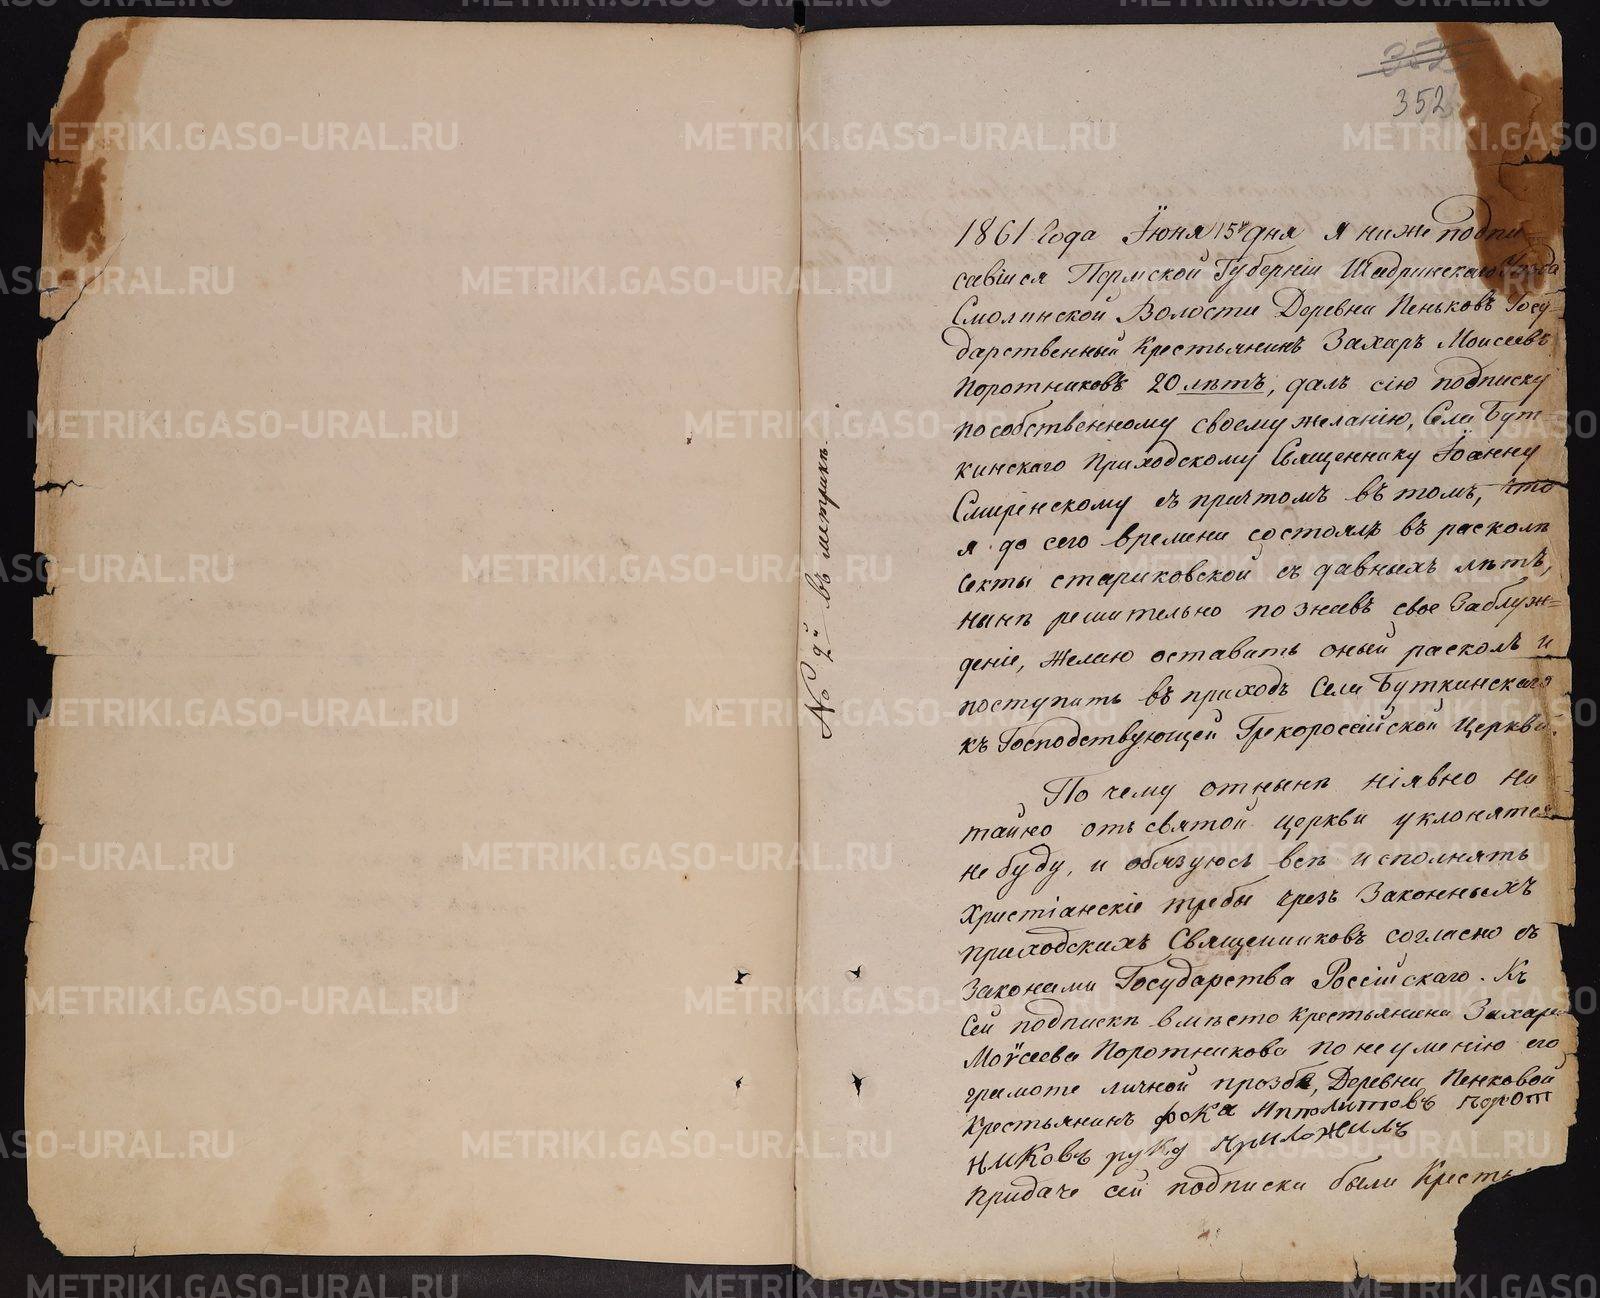 352
352
№ 2й въ метрикѣ
1861 Года Їюня 15го дня я ниже подпи-
савшіся Пермской Губерніи Шадринскаго Уѣзда
Смолинской Волости Деревни Пеньковъ Госу-
дарственный крестьянинъ Захаръ Моисеевъ
Поротниковъ 20 лѣтъ, далъ сію подписку
по собственному своему желанію, Села Бут-
кинскаго Приходскому Священнику Їоанну
Смиренскому съ причтомъ въ томъ, что
я до сего времени состоялъ въ расколѣ
секты стариковской съ давныхъ лѣтъ,
нынѣ решительно познавъ свое Заблуж=
деніе, желаю оставать оный расколъ и
поступить въ приходъ Села Буткинскаго
къ Господствующей Грекороссійской Церкви.
По чему отнынѣ ніявно ни
тайно отъ святой церкви уклонятся
не буду, и обязуюсь всѣ исполнять
Христіанскіе требы чрезъ Законныхъ
приходскихъ Священниковъ согласно съ
Законами Государства Россійскаго. Къ
Сей подпискѣ вмѣсто крестьянина Захара
Моѵсеева Поротникова по не уменію его
грамоте личной прозбѣ, Деревни Пенковой
Крестьянинъ фока Ипполитовъ Порот
никовъ руку приложилъ
Придаче сей подписки были Кресть
METRIKI.GASO-URAL.RU